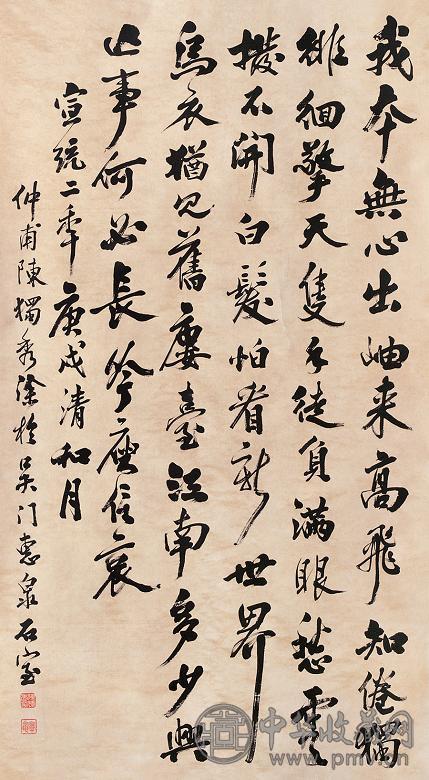 我本無心出岫来高飛知倦獨
徘徊擎天隻手徒負滿眼愁雲
撥不開白髮怕看新世界
烏衣猶見舊廔臺江南多少興
亡事何必長吟庾信哀
宣統二年庚戌清和月
仲甫陳獨秀涂於吳门惠泉石室
中华收藏网
www.pmv.cn